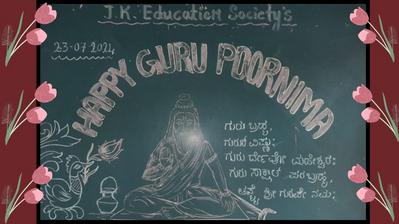 J.K. Education Society's
23-07-2024
HAPPY GURU POORNIMA
ಗುರು ಬ್ರಹ್ಮ
ಗುರುರ್ ವಿಷ್ಣುಃ
ಗುರು ರ್ದೇವೋ ಮಹೇಶ್ವರಃ
ಗುರು ಸಾಕ್ಷಾತ್ ಪರಬ್ರಹ್ಮ
ತಸ್ಮೈ ಶ್ರೀ ಗುರುವೇ ನಮಃ